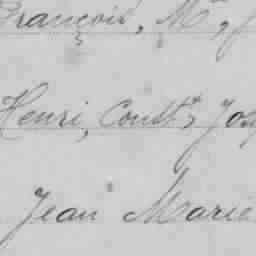 François, Mie, J
Henri, Constt, Jos
Jean Marie